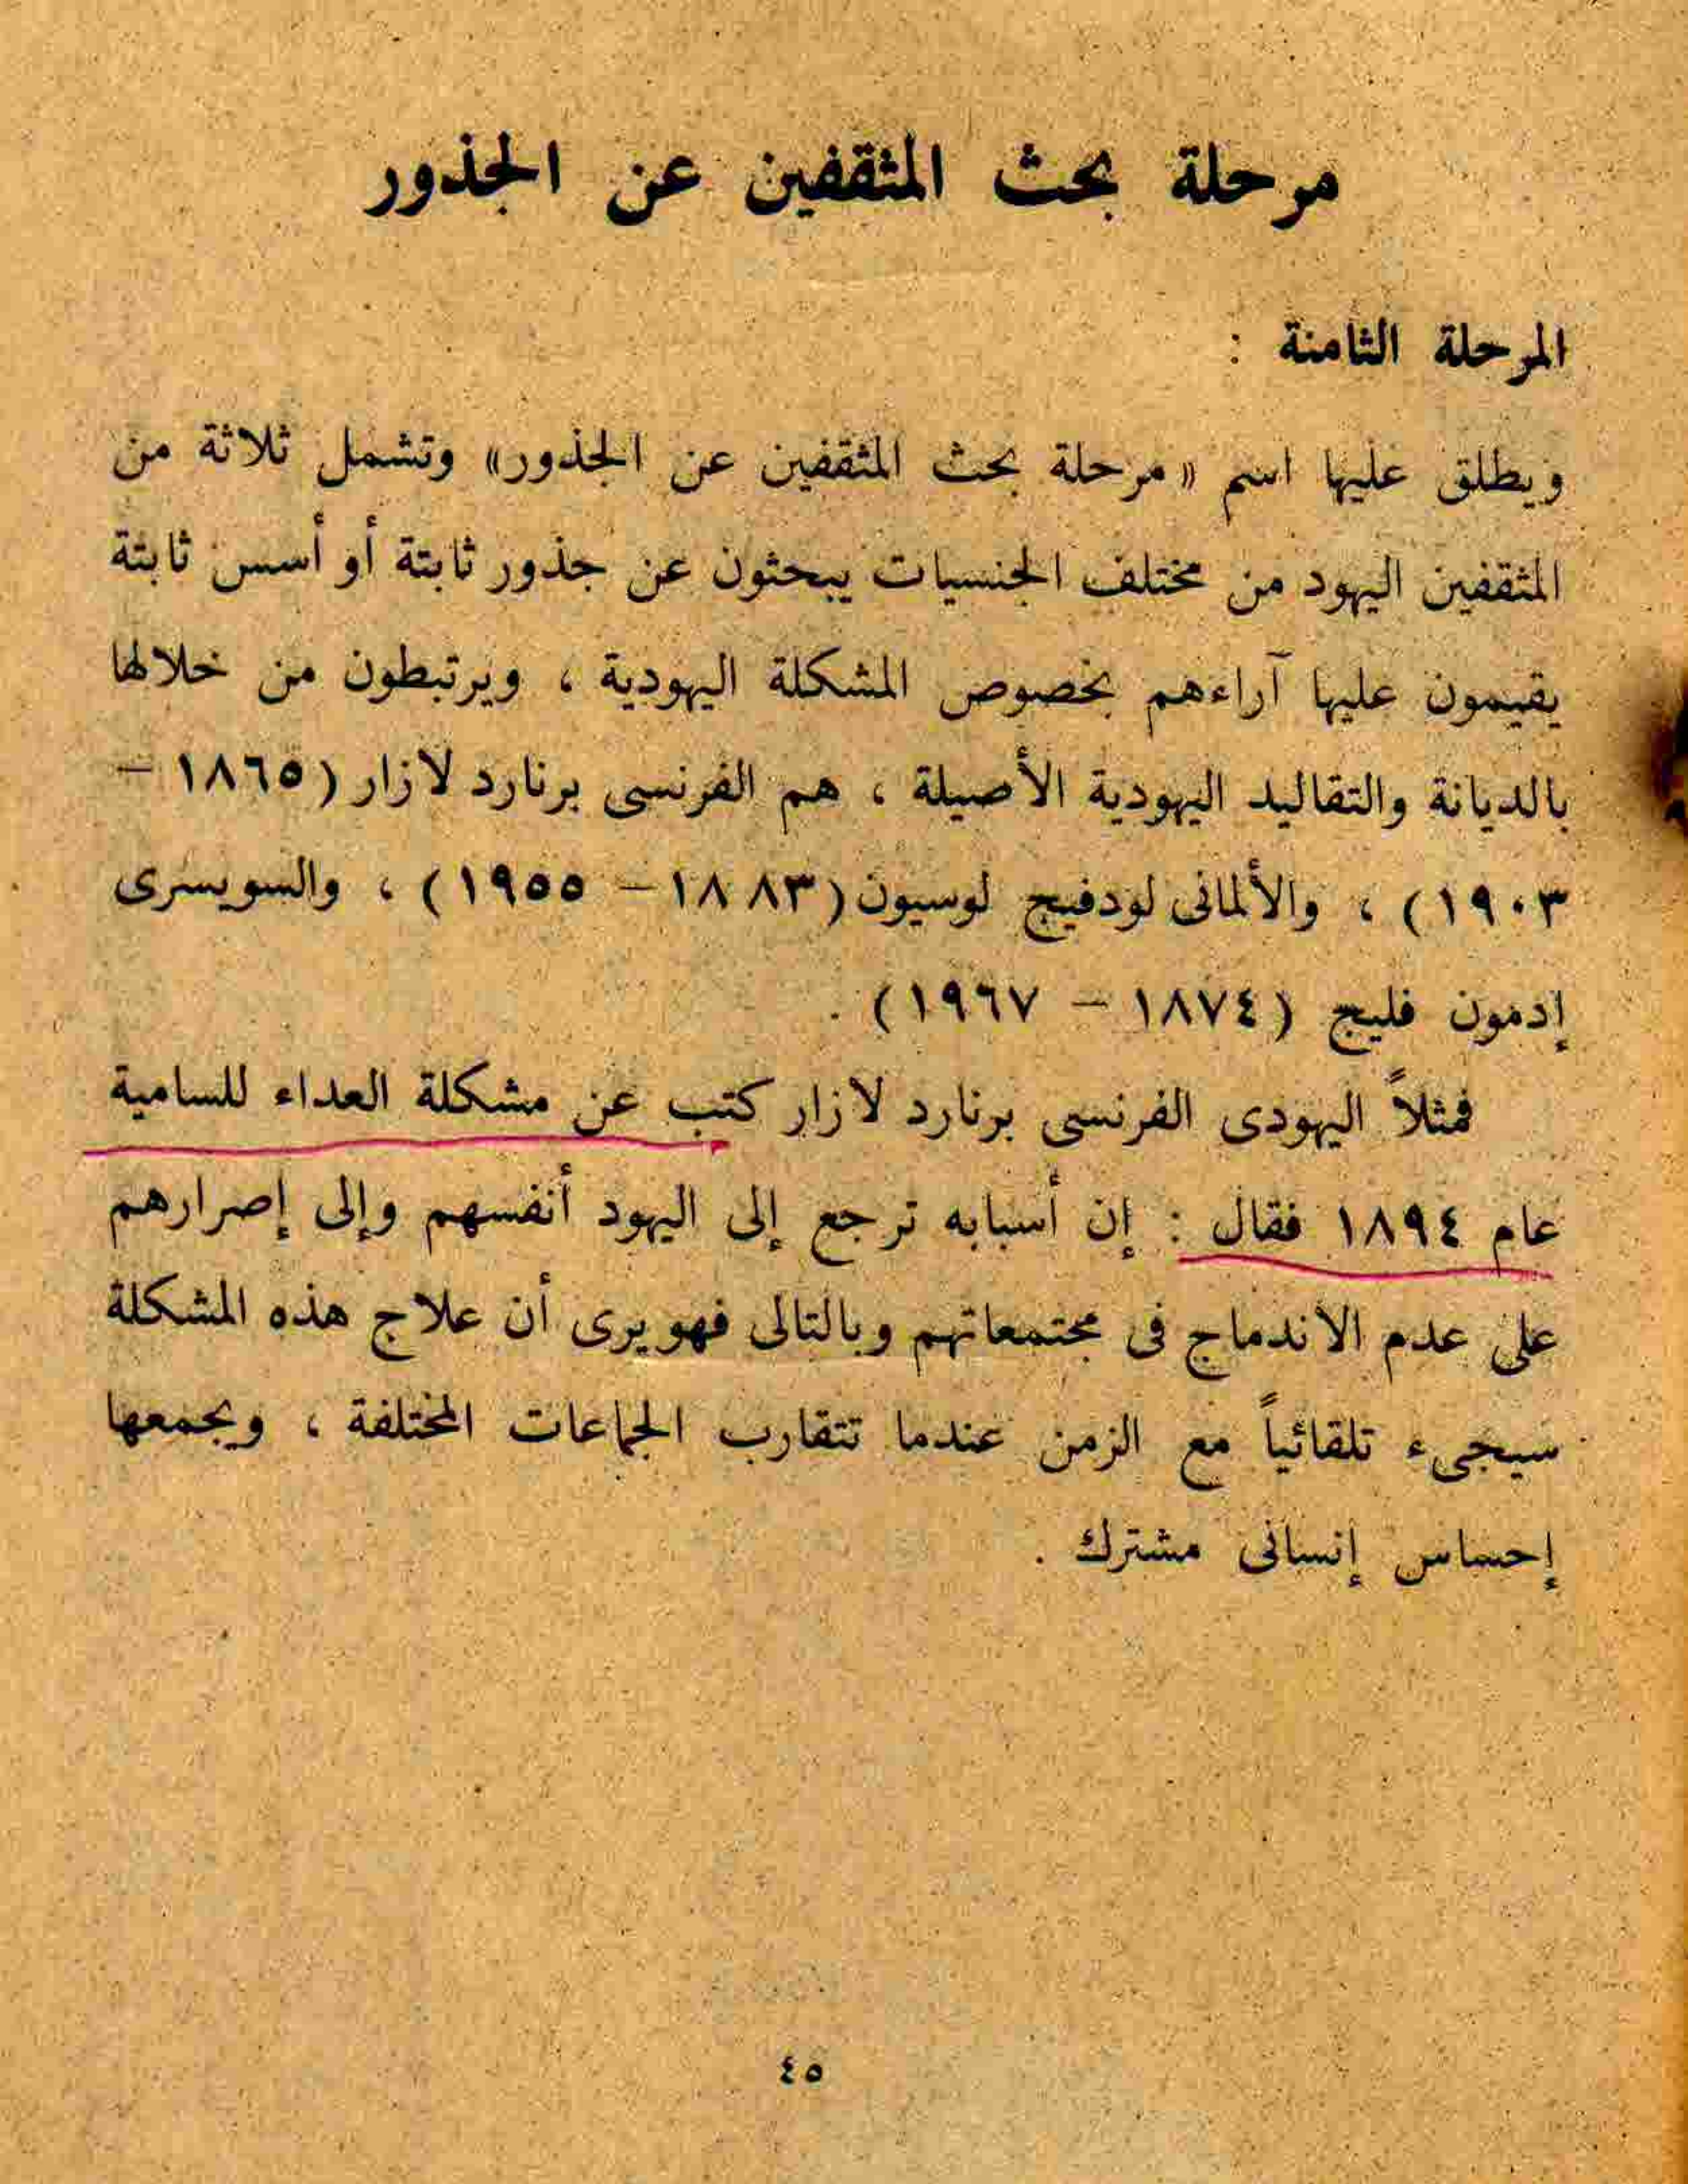 مرحلة بحث المثقفين عن الجذور
المرحلة الثامنة :
ويطلق عليها اسم «مرحلة بحث المثقفين عن الجذور» وتشمل ثلاثة من
المثقفين اليهود من مختلف الجنسيات يبحثون عن جذور ثابتة أو أسس ثابتة
يقيمون عليها آراءهم بخصوص المشكلة اليهودية ، ويرتبطون من خلالها
بالديانة والتقاليد اليهودية الأصيلة ، هم الفرنسى برنارد لازار (١٨٦٥ –
١٩٠٣) ، والألمانى لودفيج لوسيون (١٨٨٣ – ١٩٥٥) ، والسويسرى
إدمون فليج (١٨٧٤ – ١٩٦٧) .
فمثلاً اليهودى الفرنسى برنارد لازار كتب عن مشكلة العداء للسامية
عام ١٨٩٤ فقال : إن أسبابه ترجع إلى اليهود أنفسهم وإلى إصرارهم
على عدم الاندماج فى مجتمعاتهم وبالتالى فهو يرى أن علاج هذه المشكلة
سيجىء تلقائياً مع الزمن عندما تتقارب الجماعات المختلفة ، ويجمعها
إحساس إنسانى مشترك .
٤٥